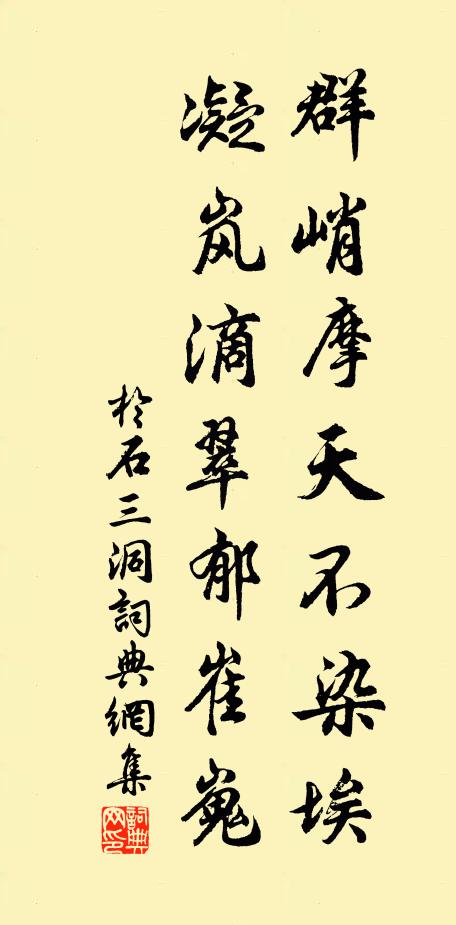 群峭摩天不染埃
凝岚滴翠郁崔嵬
於石三洞詞典網集
詞典网印